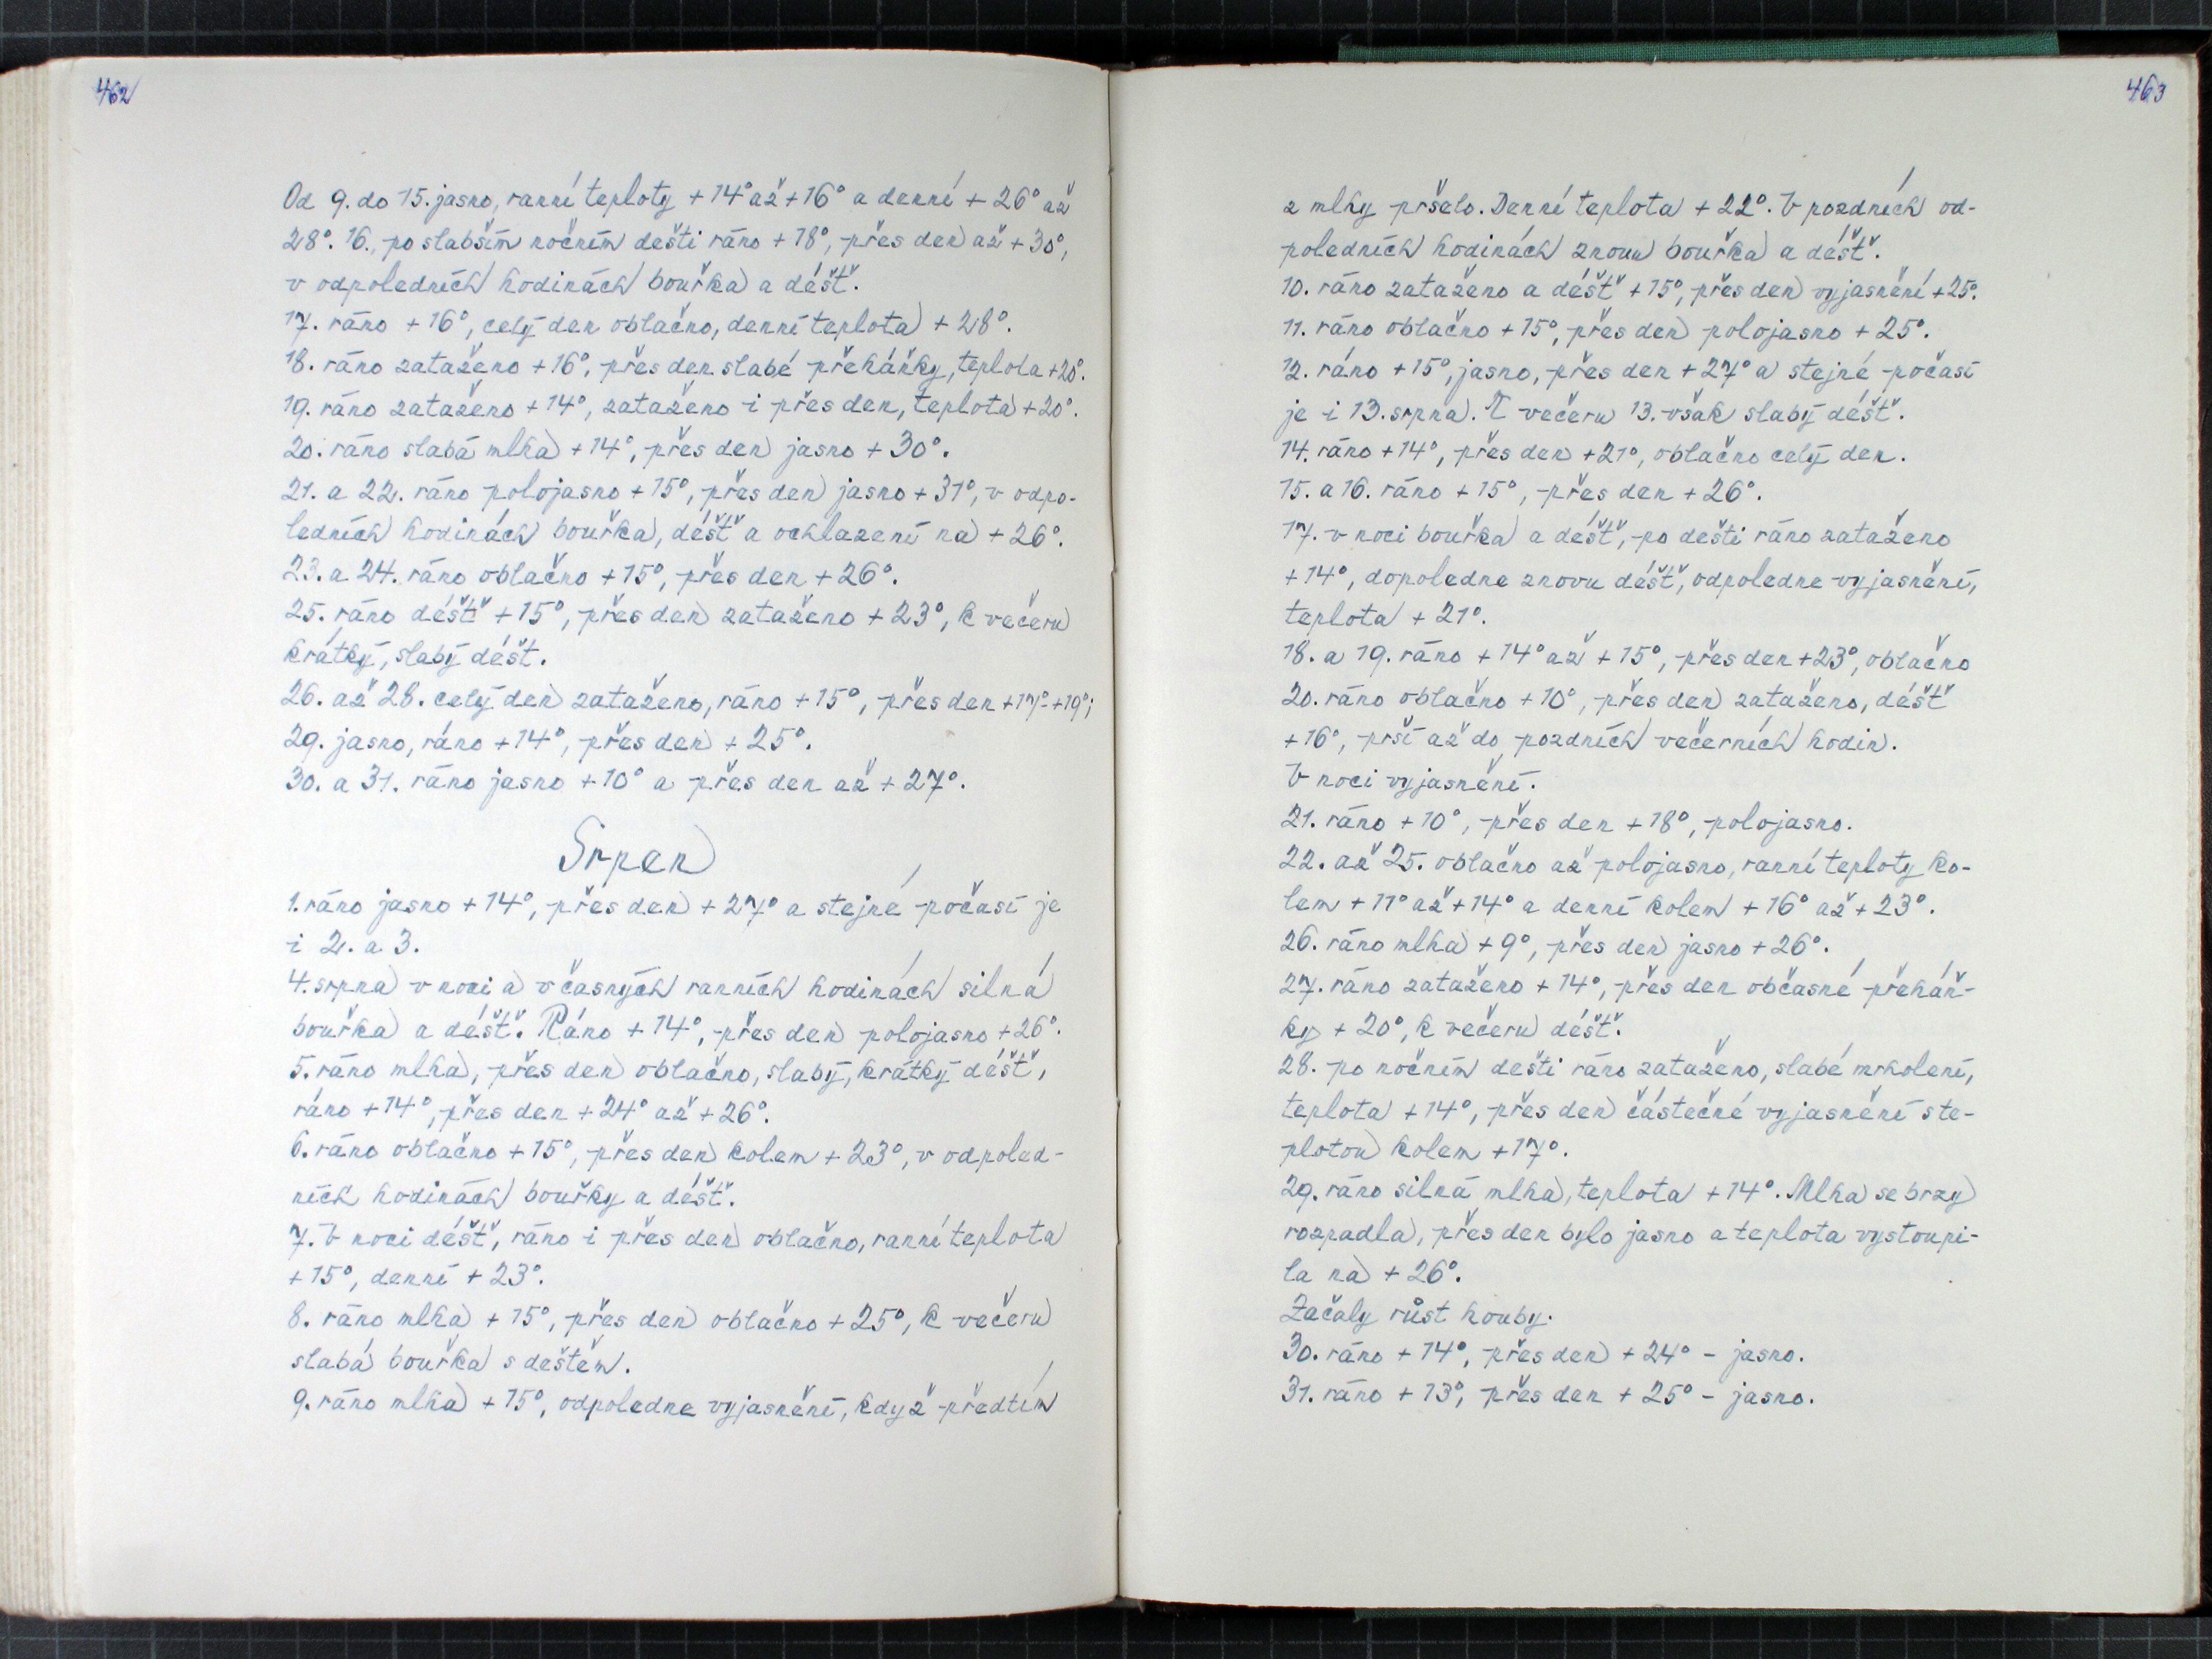 462
Od 9. do 15. jasno, ranní teploty +14° až +16° a denní +26° až
28°. 16., po slabším nočním dešti ráno +18°, přes den až +30°,
v odpoledních hodinách bouřka a déšť.
17. ráno +16°, celý den oblačno, denní teplota +28°.
18. ráno zataženo +16°, přes den slabé přeháňky, teplota +20°.
19. ráno zataženo +14°, zataženo i přes den, teplota +20°.
20. ráno slabá mlha +14°, přes den jasno +30°.
21. a 22. ráno polojasno +15°, přes den jasno +31°, v odpo-
ledních hodinách bouřka, déšť a ochlazení na +26°.
23. a 24. ráno oblačno +15°, přes den +26°.
25. ráno déšť +15°, přes den zataženo +23°, k večeru
krátký, slabý déšt.
26. až 28. celý den zataženo, ráno +15°, přes den +17°-+19°;
29. jasno, ráno +14°, přes den +25°.
30. a 31. ráno jasno +10° a přes den až +27°.
Srpen
1. ráno jasno +14°, přes den +27° a stejné počasí je
i 2. a 3.
4. srpna v noci a v časných ranních hodinách silná
bouřka a déšť. Ráno +14°, přes den polojasno +26°.
5. ráno mlha, přes den oblačno, slabý, krátký déšť,
ráno +14°, přes den +24° až +26°.
6. ráno oblačno +15°, přes den kolem +23°, v odpoled-
ních hodinách bouřky a déšť.
7. V noci déšť, ráno i přes den oblačno, ranní teplota
+15°, denní +23°.
8. ráno mlha +15°, přes den oblačno +25°, k večeru
slabá bouřka s deštěm.
9. ráno mlha +15°, odpoledne vyjasnění, když předtím
463
z mlhy pršelo. Denní teplota +22°. V pozdních od-
poledních hodinách znovu bouřka a déšť.
10. ráno zataženo a déšť +15°, přes den vyjasnění +25°.
11. ráno oblačno +15°, přes den polojasno +25°.
12. ráno +15°, jasno, přes den +27° a stejné počasí
je i 13. srpna. K večeru 13. však slabý déšť.
14. ráno +14°, přes den +21°, oblačno celý den.
15. a 16. ráno +15°, přes den +26°.
17. v noci bouřka a déšť, po dešti ráno zataženo
+14°, dopoledne znovu déšť, odpoledne vyjasnění,
teplota +21°.
18. a 19. ráno +14° až +15°, přes den +23°, oblačno
20. ráno oblačno +10°, přes den zataženo, déšť
+16°, prší až do pozdních večerních hodin.
V noci vyjasnění.
21. ráno +10°, přes den +18°, polojasno.
22. až 25. oblačno až polojasno, ranní teploty ko-
lem +11° až +14° a denní kolem +16° až +23°.
26. ráno mlha +9°, přes den jasno +26°.
27. ráno zataženo +14°, přes den občasné přeháň-
ky +20°, k večeru déšť.
28. po nočním dešti ráno zataženo, slabé mrholení,
teplota +14°, přes den částečné vyjasnění s te-
plotou kolem +17°.
29. ráno silná mlha, teplota +14°. Mlha se brzy
rozpadla, přes den bylo jasno a teplota vystoupi-
la na +26°.
Začaly růst houby.
30. ráno +14°, přes den +24° - jasno.
31. ráno +13°, přes den +25° - jasno.